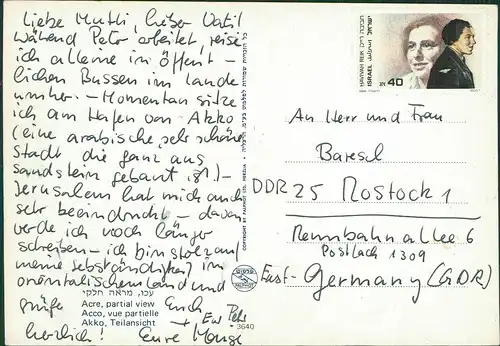 Liebe Mutti, lieber Vati!
Während Peter arbeitet, reise
ich alleine in öffent-
lichen Bussen im Lande
umher. - Momentan sitze
ich am Hafen von Akko
(eine arabische, sehr schöne
Stadt die ganz aus
Sandstein gebaut ist) -
Jerusalem hat mich auch
sehr beeindruckt - davon
werde ich noch länger
schreiben - ich bin stolz auf
meine Selbständigkeit im
orientalischen Land und
grüße Euch
herzlich! Eure
עכו, מראה חלקי
Acre, partial view
Acco, vue partielle
Akko, Teilansicht
3640
COPYRIGHT BY PALPHOT LTD. HERZLIA
כל הזכויות שמורות לפלפוט בע"מ, הרצליה
חביבה רייק
ישראל
ISRAEL
HAVIVAH REIK
40
An Herr und Frau
Baresel
DDR 25 Rostock 1
Rennbahnallee 6
Postfach 1309
East-Germany (GDR)